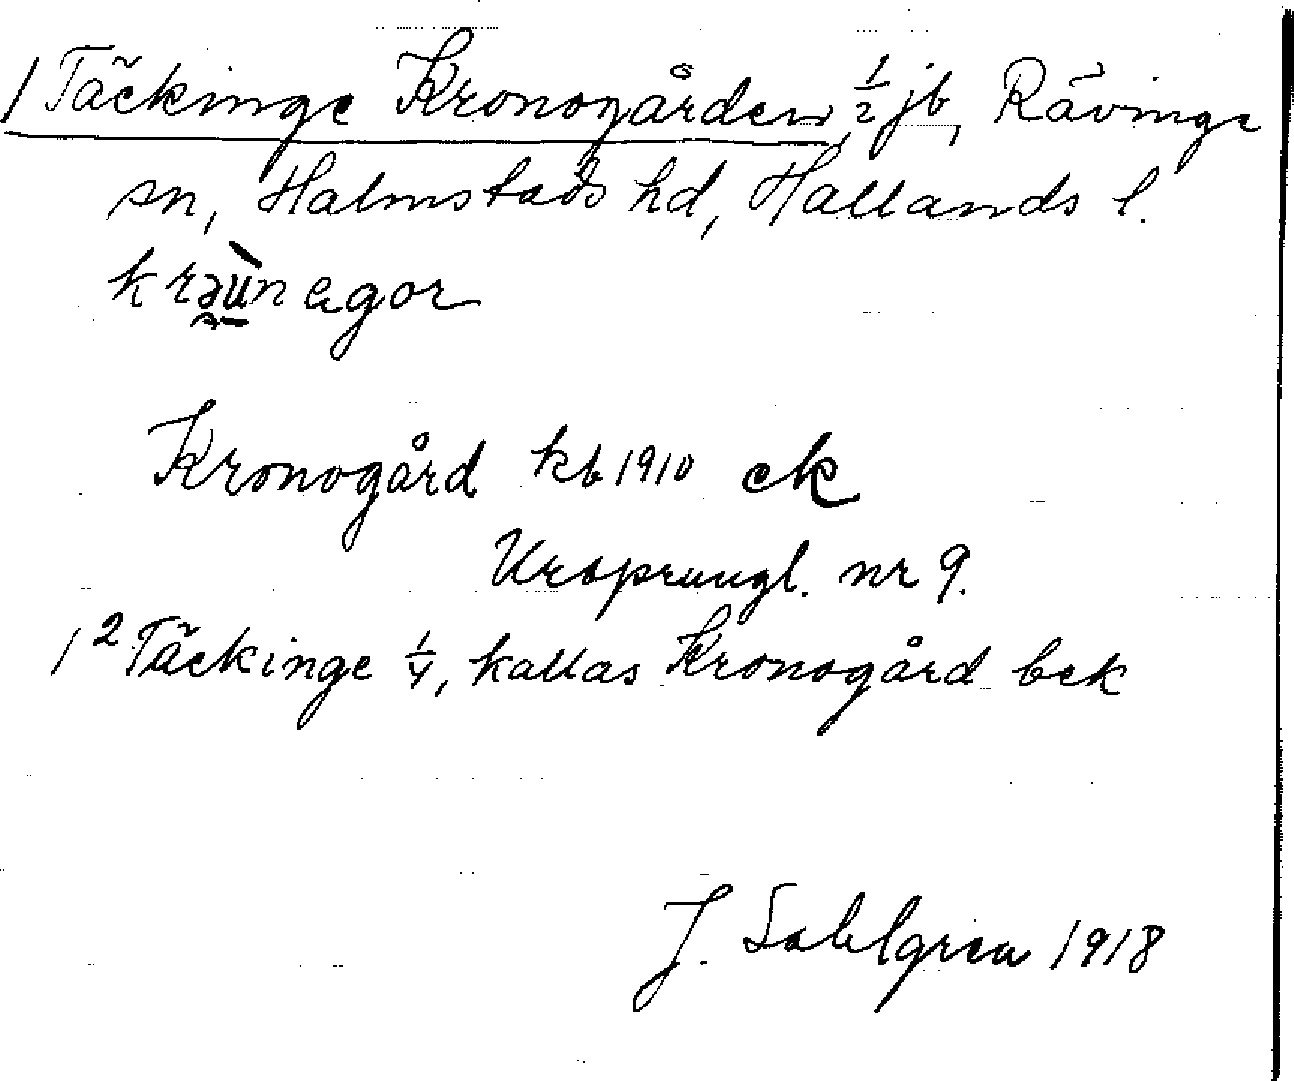 1 Täckinge Kronogården, 1/2 jb, Rävinge
sn, Halmstads hd, Hallands l.
krəùnagor
Kronogård kb 1910 ek
Ursprungl. nr 9.
1² Täckinge 1/4, kallas Kronogård bek
J. Sahlgren 1918